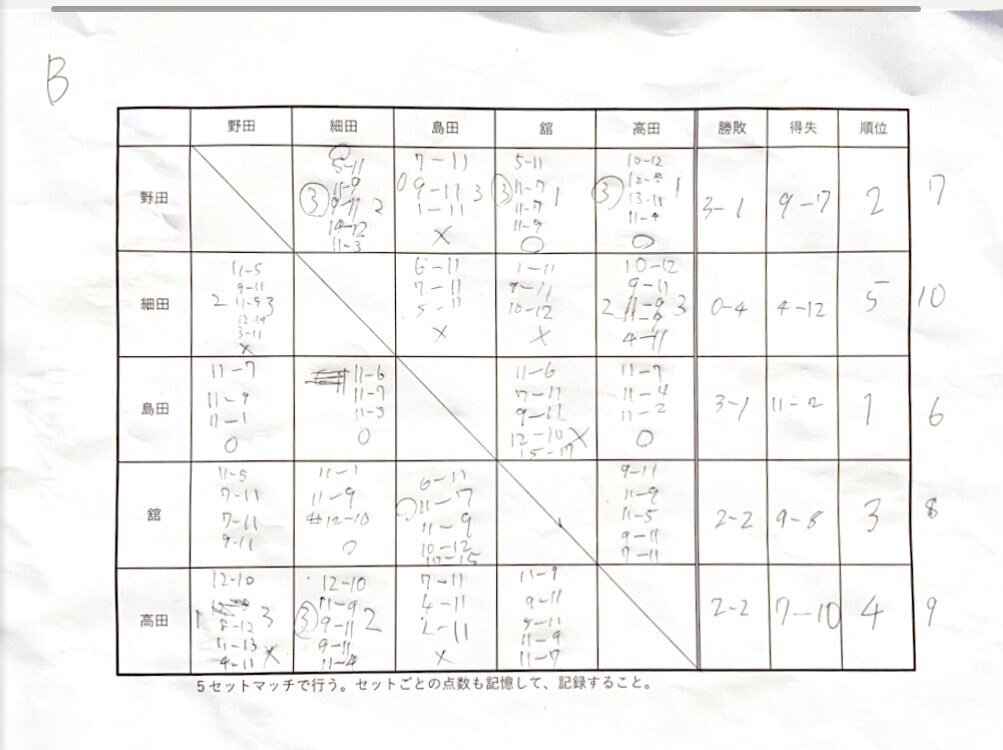 B
野田 細田 島田 舘 高田 勝敗 得失 順位
野田
5-11
11-9
③ 9-11 2
14-12
11-3
7-11
0 9-11 3
1-11
×
5-11
③ 11-7 1
11-7
11-9
○
10-12
③ 1
11-4
○
3-1
9-7
2
7
細田
11-5
9-11
2 11-9 3
12-14
3-11
×
6-11
7-11
5-11
×
1-11
9-11
10-12
×
10-12
9-11
2 11-9 3
4-11
0-4
4-12
5
10
島田
11-7
11-9
○
11-6
11-7
11-5
○
11-6
7-11
9-11
12-10 ×
15-17
11-7
11-4
11-2
○
3-1
11-2
1
6
舘
11-5
7-11
7-11
9-11
11-1
11-9
12-10
○
6-11
○ 11-7
11-9
10-12
17-15
9-11
11-9
11-5
9-11
7-11
2-2
9-8
3
8
高田
12-10
1 3
8-12
11-13
4-11 ×
12-10
11-9
③ 9-11 2
9-11
11-4
7-11
4-11
2-11
×
11-9
9-11
5-11
11-9
11-7
2-2
7-10
4
9
5セットマッチで行う。セットごとの点数も記憶して、記録すること。